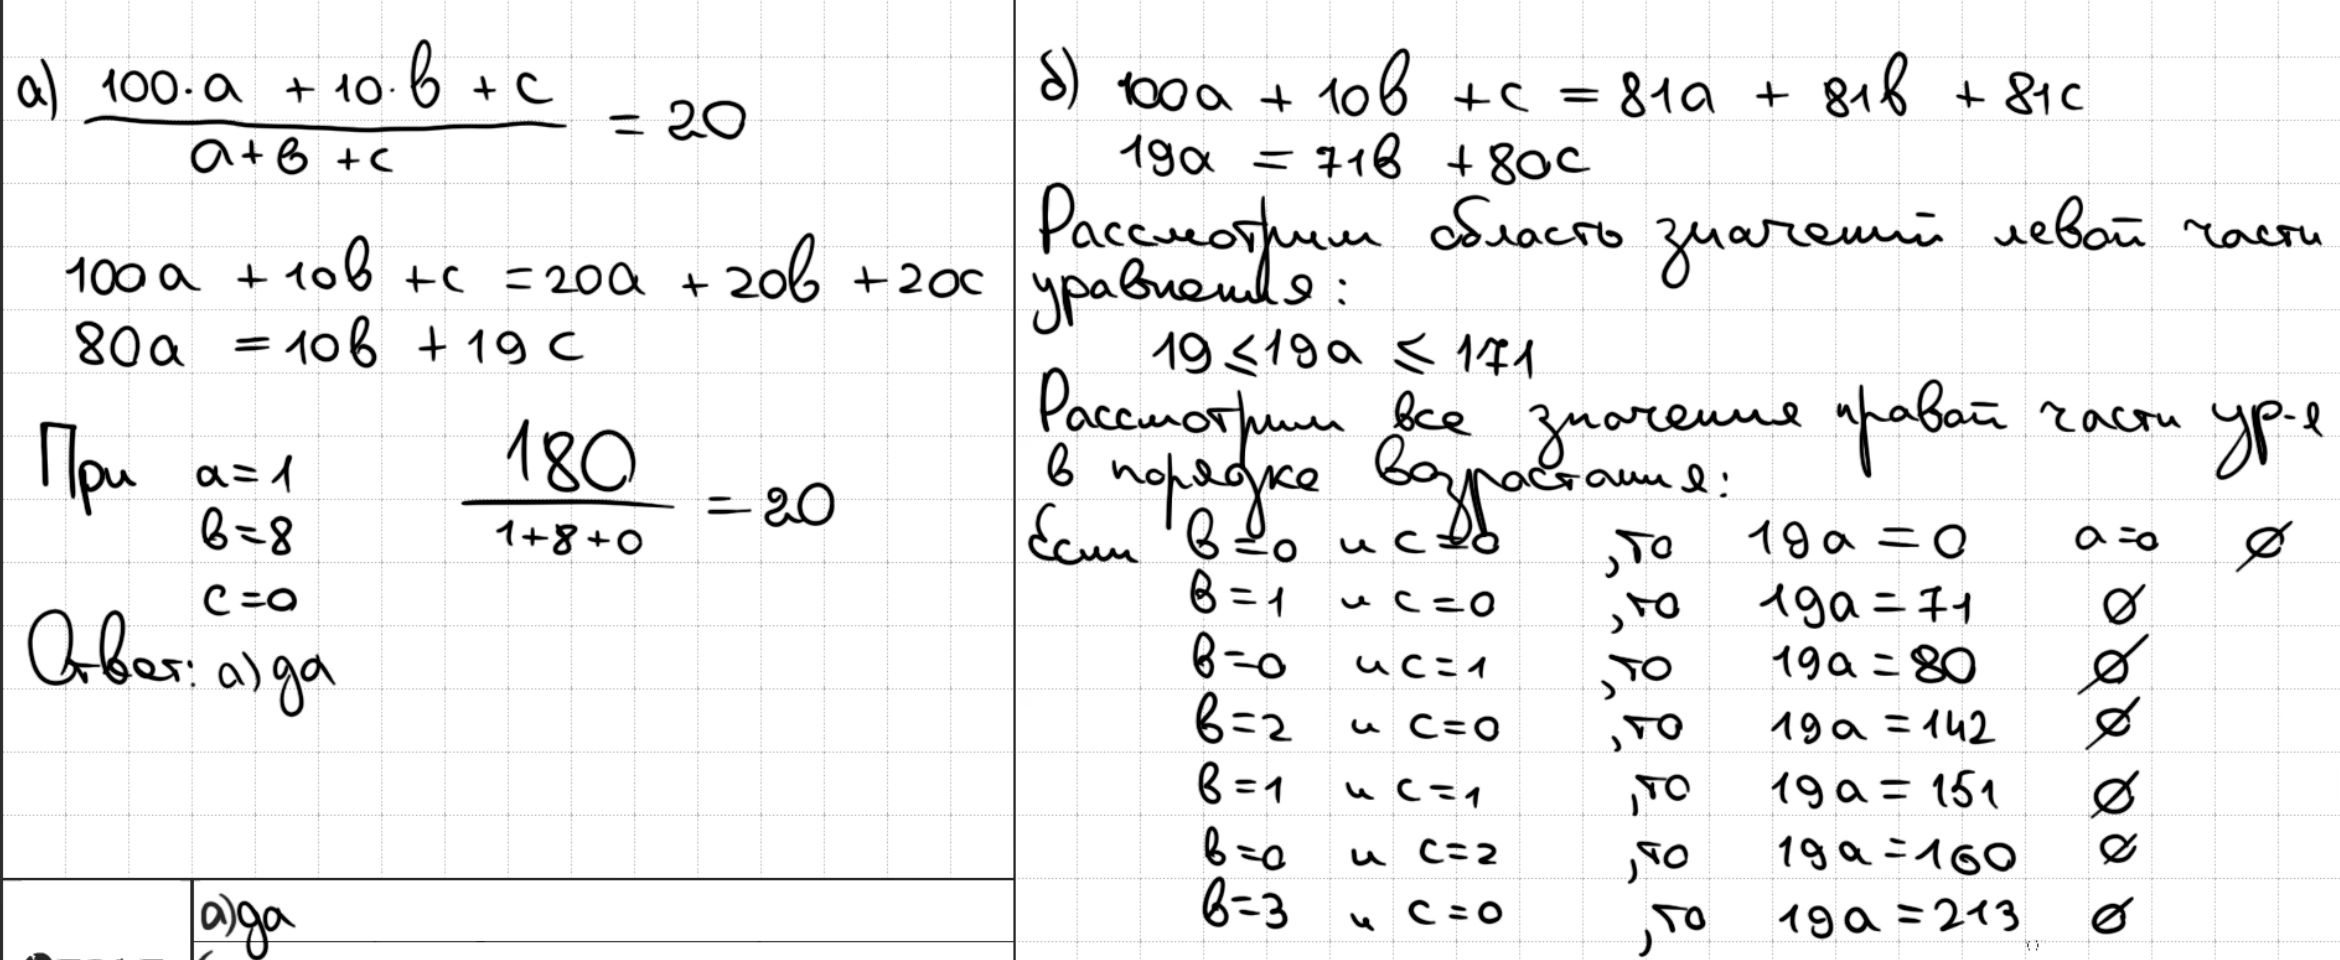 а) (100·a + 10·b + c)/(a + b + c) = 20
100a + 10b + c = 20a + 20b + 20c
80a = 10b + 19c
При a=1
b=8
c=0
180/(1+8+0) = 20
Ответ: а) да
а) да
б) 100a + 10b + c = 81a + 81b + 81c
19a = 71b + 80c
Рассмотрим область значений левой части
уравнения:
19 ≤ 19a ≤ 171
Рассмотрим все значения правой части ур-я
в порядке возрастания:
Если b=0 и c=0, то 19a = 0 a=0 ∅
b=1 и c=0, то 19a = 71 ∅
b=0 и c=1, то 19a = 80 ∅
b=2 и c=0, то 19a = 142 ∅
b=1 и c=1, то 19a = 151 ∅
b=0 и c=2, то 19a = 160 ∅
b=3 и c=0, то 19a = 213 ∅